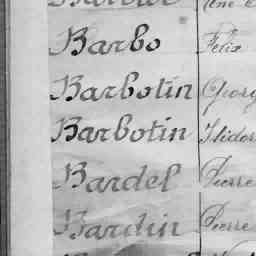 Barbo Félix
Barbotin Georg
Barbotin Isidor
Bardel Pierre
Bardin Pierre